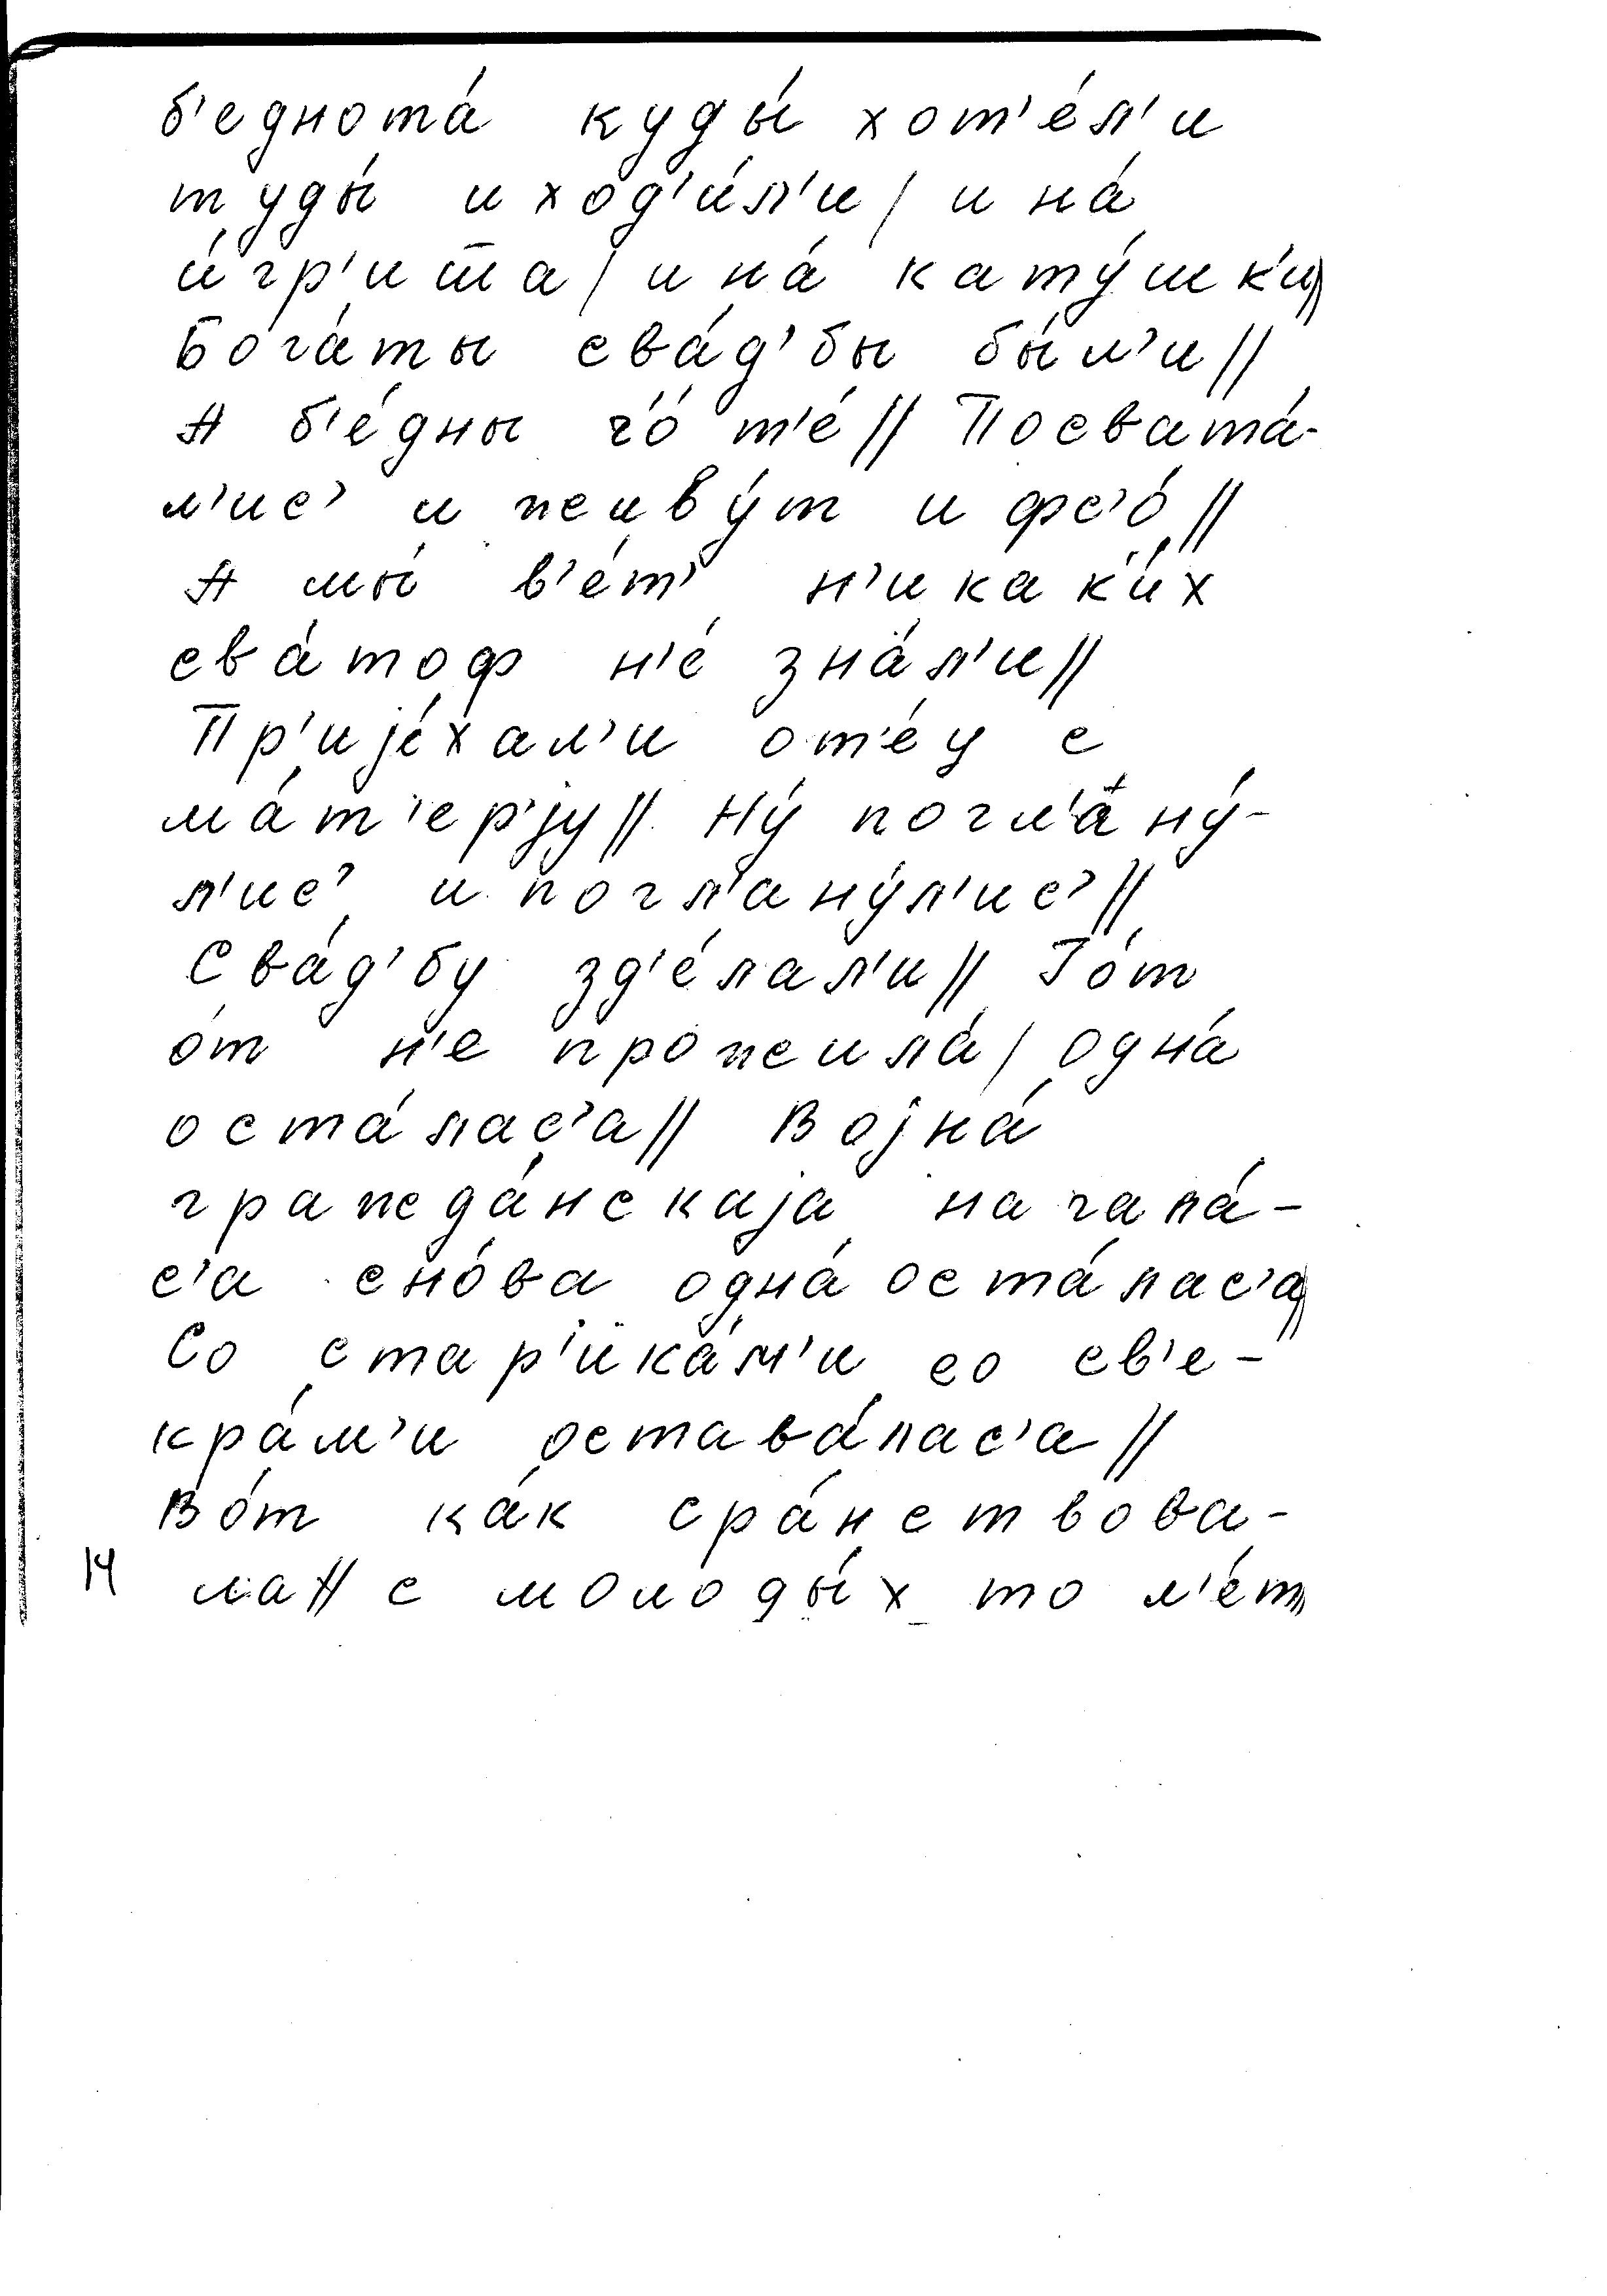 б'еднота́ куды́ хот'е́л'и
туды́ и ход'и́л'и / и на́
и́гр'иш̅а / и на́ кату́шк'и//
Бога́ты сва́д'бы бы́л'и //
А б'е́дны ч'о́ т'е́ // Посвата́-
л'ис' и живу́т и фс'о́ //
А мы́ в'е́т' н'икак'и́х
сва́тоф н'е́ зна́л'и //
Пр'ијэ́хал'и от'е́ц с
ма́т'ер'јy // Ну́ погл'ану́-
л'ис' и погл'ану́л'ис' //
Сва́д'бу зд'е́лал'и // Го́т
о́т н'е прожила́ / одна́
оста́лас'а // Војна́
гражда́нскаја начала́-
с'а сно́ва одна́ оста́лас'а//
Со стар'ика́м'и со св'е-
кра́м'и остава́лас'а //
Во́т ка́к сра́нствова-
14 ла // с молоды́х то л'е́т//